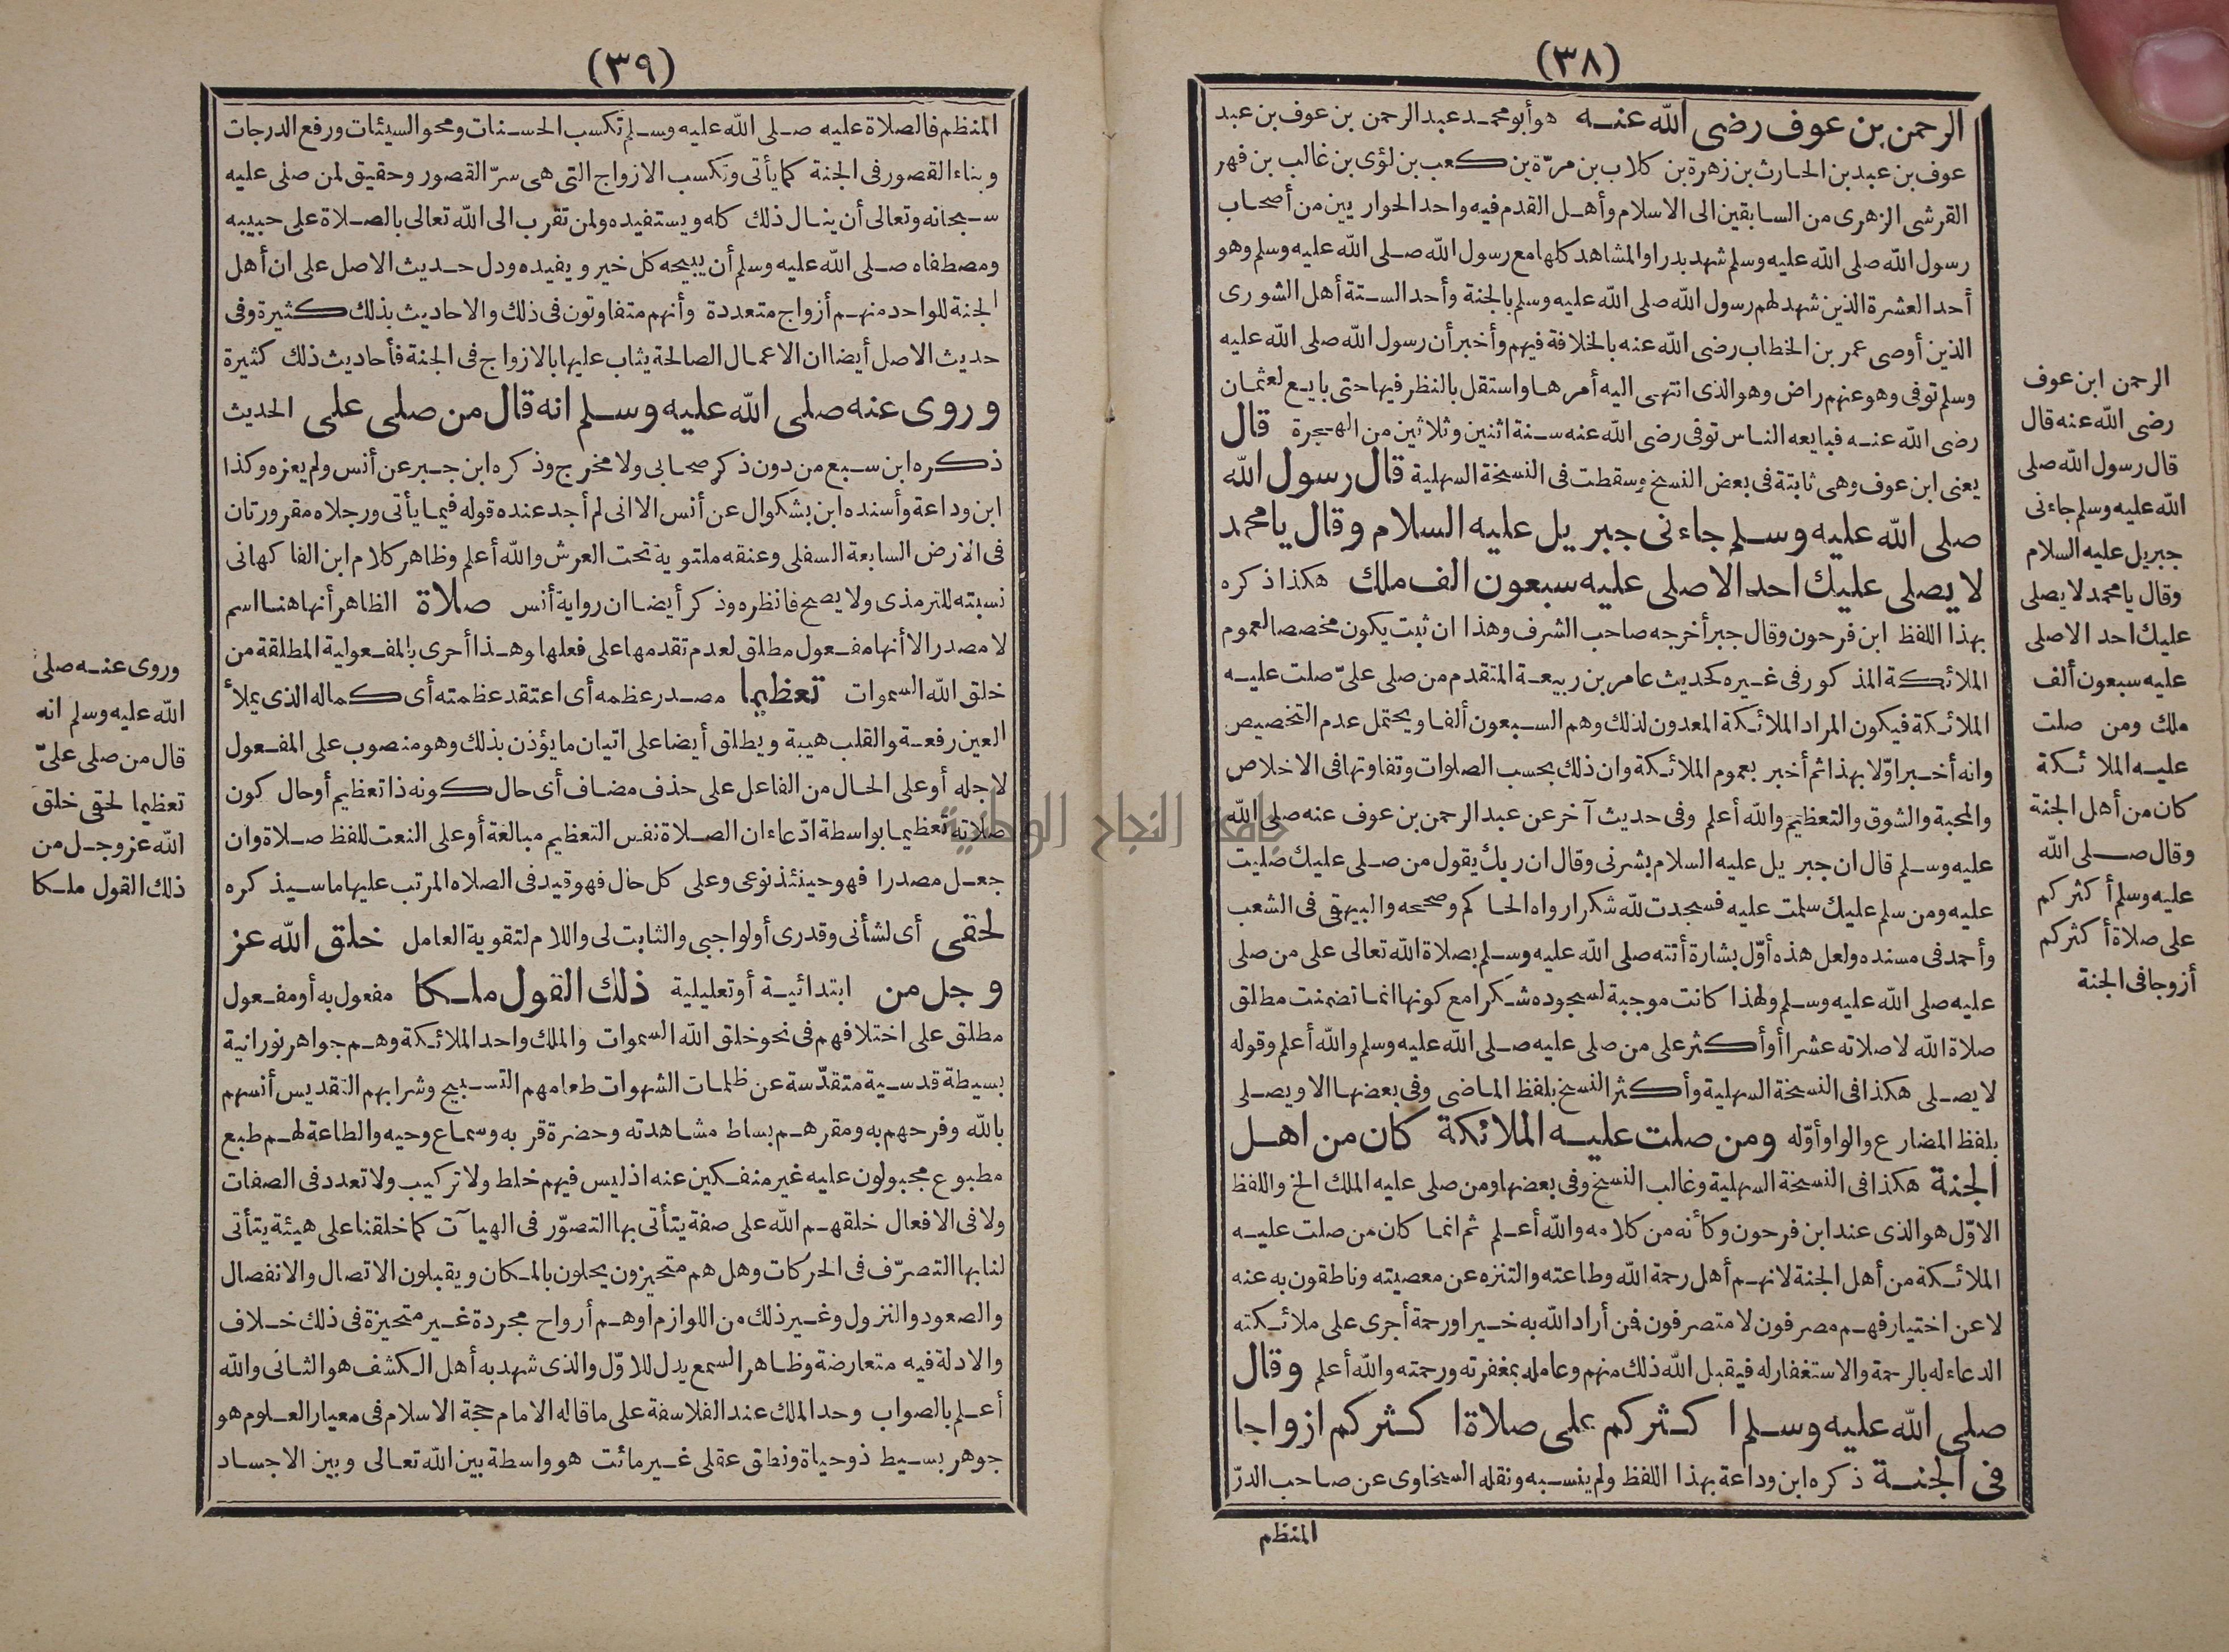 (٣٨)
الرحمن بن عوف رضى الله عنه هو أبو محمد عبد الرحمن بن عوف بن عبد
عوف بن عبد بن الحارث بن زهرة بن كلاب بن مرّة بن كعب بن لؤى بن غالب بن فهر
القرشى الزهرى من السابقين الى الاسلام وأهل القدم فيه واحد الحواريين من أصحاب
رسول الله صلى الله عليه وسلم شهد بدرا والمشاهد كلها مع رسول الله صلى الله عليه وسلم وهو
أحد العشرة الذين شهد لهم رسول الله صلى الله عليه وسلم بالجنة وأحد الستة أهل الشورى
الذين أوصى عمر بن الخطاب رضى الله عنه بالخلافة فيهم وأخبر أن رسول الله صلى الله عليه
وسلم توفى وهو عنهم راض وهو الذى انتهى اليه أمرها واستقل بالنظر فيها حتى بايع لعثمان
رضى الله عنه فبايعه الناس توفى رضى الله عنه سنة اثنين وثلاثين من الهجرة قال
يعنى ابن عوف وهى ثابتة فى بعض النسخ وسقطت فى النسخة السهلية قال رسول الله
صلى الله عليه وسلم جاءنى جبريل عليه السلام وقال يا محمد
لا يصلى عليك احد الا صلى عليه سبعون الف ملك هكذا ذكره
بهذا اللفظ ابن فرحون وقال جبر أخرجه صاحب الشرف وهذا ان ثبت يكون مخصصا لعموم
الملائكة المذكور فى غيره كحديث عامر بن ربيعة المتقدم من صلى علىّ صلت عليه
الملائكة فيكون المراد الملائكة المعدون لذلك وهم السبعون ألفا ويحتمل عدم التخصيص
وانه أخبر اوّلا بهذا ثم أخبر بعموم الملائكة وان ذلك بحسب الصلوات وتفاوتها فى الاخلاص
والمحبة والشوق والتعظيم والله أعلم وفى حديث آخر عن عبد الرحمن بن عوف عنه صلى الله
عليه وسلم قال ان جبريل عليه السلام بشرنى وقال ان ربك يقول من صلى عليك صليت
عليه ومن سلم عليك سلمت عليه فسجدت لله شكرا رواه الحاكم وصححه والبيهقى فى الشعب
وأحمد فى مسنده ولعل هذه أوّل بشارة أتته صلى الله عليه وسلم بصلاة الله تعالى على من صلى
عليه صلى الله عليه وسلم ولهذا كانت موجبة لسجوده شكرا مع كونها انما تضمنت مطلق
صلاة الله لا صلاته عشرا أو أكثر على من صلى عليه صلى الله عليه وسلم والله أعلم وقوله
لا يصلى هكذا فى النسخة السهلية وأكثر النسخ بلفظ الماضى وفى بعضها الا ويصلى
بلفظ المضارع والواو أوّله ومن صلت عليه الملائكة كان من اهل
الجنة هكذا فى النسخة السهلية وغالب النسخ وفى بعضها ومن صلى عليه الملك الخ واللفظ
الاوّل هو الذى عند ابن فرحون وكأنه من كلامه والله أعلم ثم انما كان من صلت عليه
الملائكة من أهل الجنة لانهم أهل رحمة الله وطاعته والتنزه عن معصيته وناطقون به عنه
لا عن اختيار فهم مصرفون لا متصرفون فمن أراد الله به خيرا ورحمة أجرى على ملائكته
الدعاء له بالرحمة والاستغفار له فيقبل الله ذلك منهم وعامله بمغفرته ورحمته والله أعلم وقال
صلى الله عليه وسلم اكثركم على صلاة اكثركم ازواجا
فى الجنة ذكره ابن وداعة بهذا اللفظ ولم ينسبه ونقله السخاوى عن صاحب الدرّ
المنظم
الرحمن ابن عوف
رضى الله عنه قال
قال رسول الله صلى
الله عليه وسلم جاءنى
جبريل عليه السلام
وقال يا محمد لا يصلى
عليك احد الا صلى
عليه سبعون ألف
ملك ومن صلت
عليه الملائكة
كان من أهل الجنة
وقال صلى الله
عليه وسلم أكثركم
على صلاة أكثركم
أزوجا فى الجنة
(٣٩)
المنظم فالصلاة عليه صلى الله عليه وسلم تكسب الحسنات ومحو السيئات ورفع الدرجات
وبناء القصور فى الجنة كما يأتى وتكسب الازواج التى هى سرّ القصور وحقيق لمن صلى عليه
سبحانه وتعالى أن ينال ذلك كله ويستفيده ولمن تقرب الى الله تعالى بالصلاة على حبيبه
ومصطفاه صلى الله عليه وسلم أن يبيحه كل خير ويفيده ودل حديث الاصل على ان أهل
الجنة للواحد منهم أزواج متعددة وأنهم متفاوتون فى ذلك والاحاديث بذلك كثيرة وفى
حديث الاصل أيضا ان الاعمال الصالحة يثاب عليها بالازواج فى الجنة فأحاديث ذلك كثيرة
وروى عنه صلى الله عليه وسلم انه قال من صلى على الحديث
ذكره ابن سبع من دون ذكر صحابى ولا مخرج وذكره ابن جبر عن أنس ولم يعزه وكذا
ابن وداعة وأسنده ابن بشكوال عن أنس الا انى لم أجد عنده قوله فيما يأتى ورجلاه مقرورتان
فى الارض السابعة السفلى وعنقه ملتوية تحت العرش والله أعلم وظاهر كلام ابن الفاكهانى
نسبته للترمذى ولا يصح فانظره وذكر أيضا ان رواية أنس صلاة الظاهر أنها هنا اسم
لا مصدر الا أنها مفعول مطلق لعدم تقدمها على فعلها وهذا أحرى بالمفعولية المطلقة من
خلق الله السموات تعظيما مصدر عظمه أى اعتقد عظمته أى كماله الذى يملأ
العين رفعة والقلب هيبة ويطلق أيضا على اتيان ما يؤذن بذلك وهو منصوب على المفعول
لاجله أو على الحال من الفاعل على حذف مضاف أى حال كونه ذا تعظيم أو حال كون
صلاته تعظيما بواسطة ادّعاء ان الصلاة نفس التعظيم مبالغة أو على النعت للفظ صلاة وان
جعل مصدرا فهو حينئذ نوعى وعلى كل حال فهو قيد فى الصلاة المرتب عليها ما سيذكره
لحقى أى لشأنى وقدرى أو لواجبى والثابت لى واللام لتقوية العامل خلق الله عز
وجل من ابتدائية أو تعليلية ذلك القول ملكا مفعول به أو مفعول
مطلق على اختلافهم فى نحو خلق الله السموات والملك واحد الملائكة وهم جواهر نورانية
بسيطة قدسية متقدّسة عن ظلمات الشهوات طعامهم التسبيح وشرابهم التقديس أنسهم
بالله وفرحهم به ومقرهم بساط مشاهدته وحضرة قربه وسماع وحيه والطاعة لهم طبع
مطبوع مجبولون عليه غير منفكين عنه اذ ليس فيهم خلط ولا تركيب ولا تعدد فى الصفات
ولا فى الافعال خلقهم الله على صفة يتأتى بها التصوّر فى الهيآت كما خلقنا على هيئة يتأتى
لنا بها التصرّف فى الحركات وهل هم متحيزون يحلون بالمكان ويقبلون الاتصال والانفصال
والصعود والنزول وغير ذلك من اللوازم او هم أرواح مجردة غير متحيزة فى ذلك خلاف
والادلة فيه متعارضة وظاهر السمع يدل للاوّل والذى شهد به أهل الكشف هو الثانى والله
أعلم بالصواب وحد الملك عند الفلاسفة على ما قاله الامام حجة الاسلام فى معيار العلوم هو
جوهر بسيط ذو حياة ونطق عقلى غير مائت هو واسطة بين الله تعالى وبين الاجساد
وروى عنه صلى
الله عليه وسلم انه
قال من صلى علىّ
تعظيما لحقى خلق
الله عز وجل من
ذلك القول ملكا
جامعة النجاح الوطنية